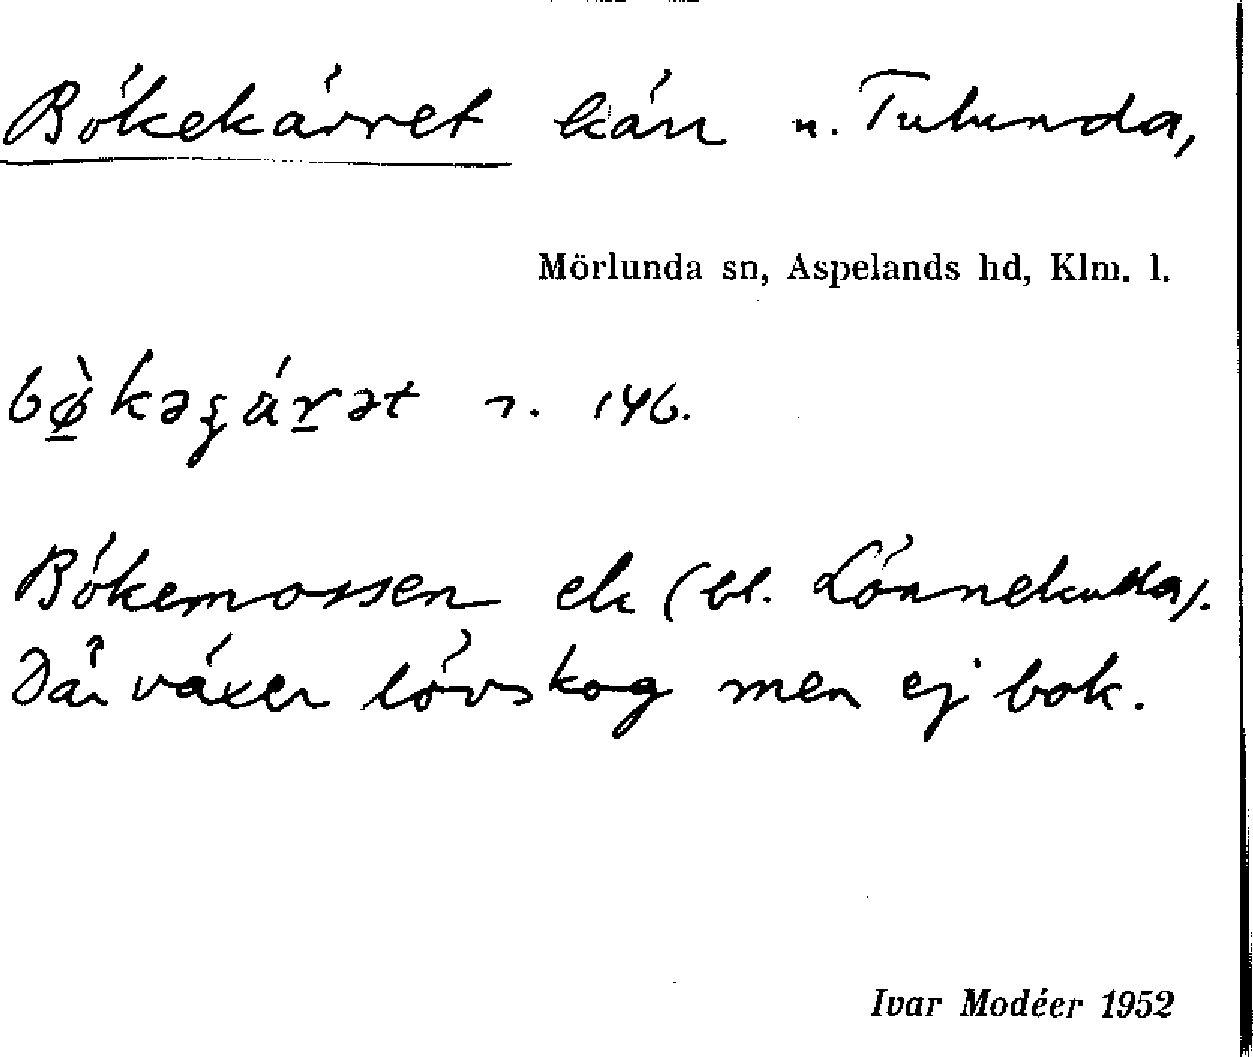 Bökekärret kärr u. Tulunda,
Mörlunda sn, Aspelands hd, Klm. l.
bø̀kəʂárət n. 146.
Bökemossen ek (bl. Lönnekulla).
Där växer lövskog men ej bok.
Ivar Modéer 1952